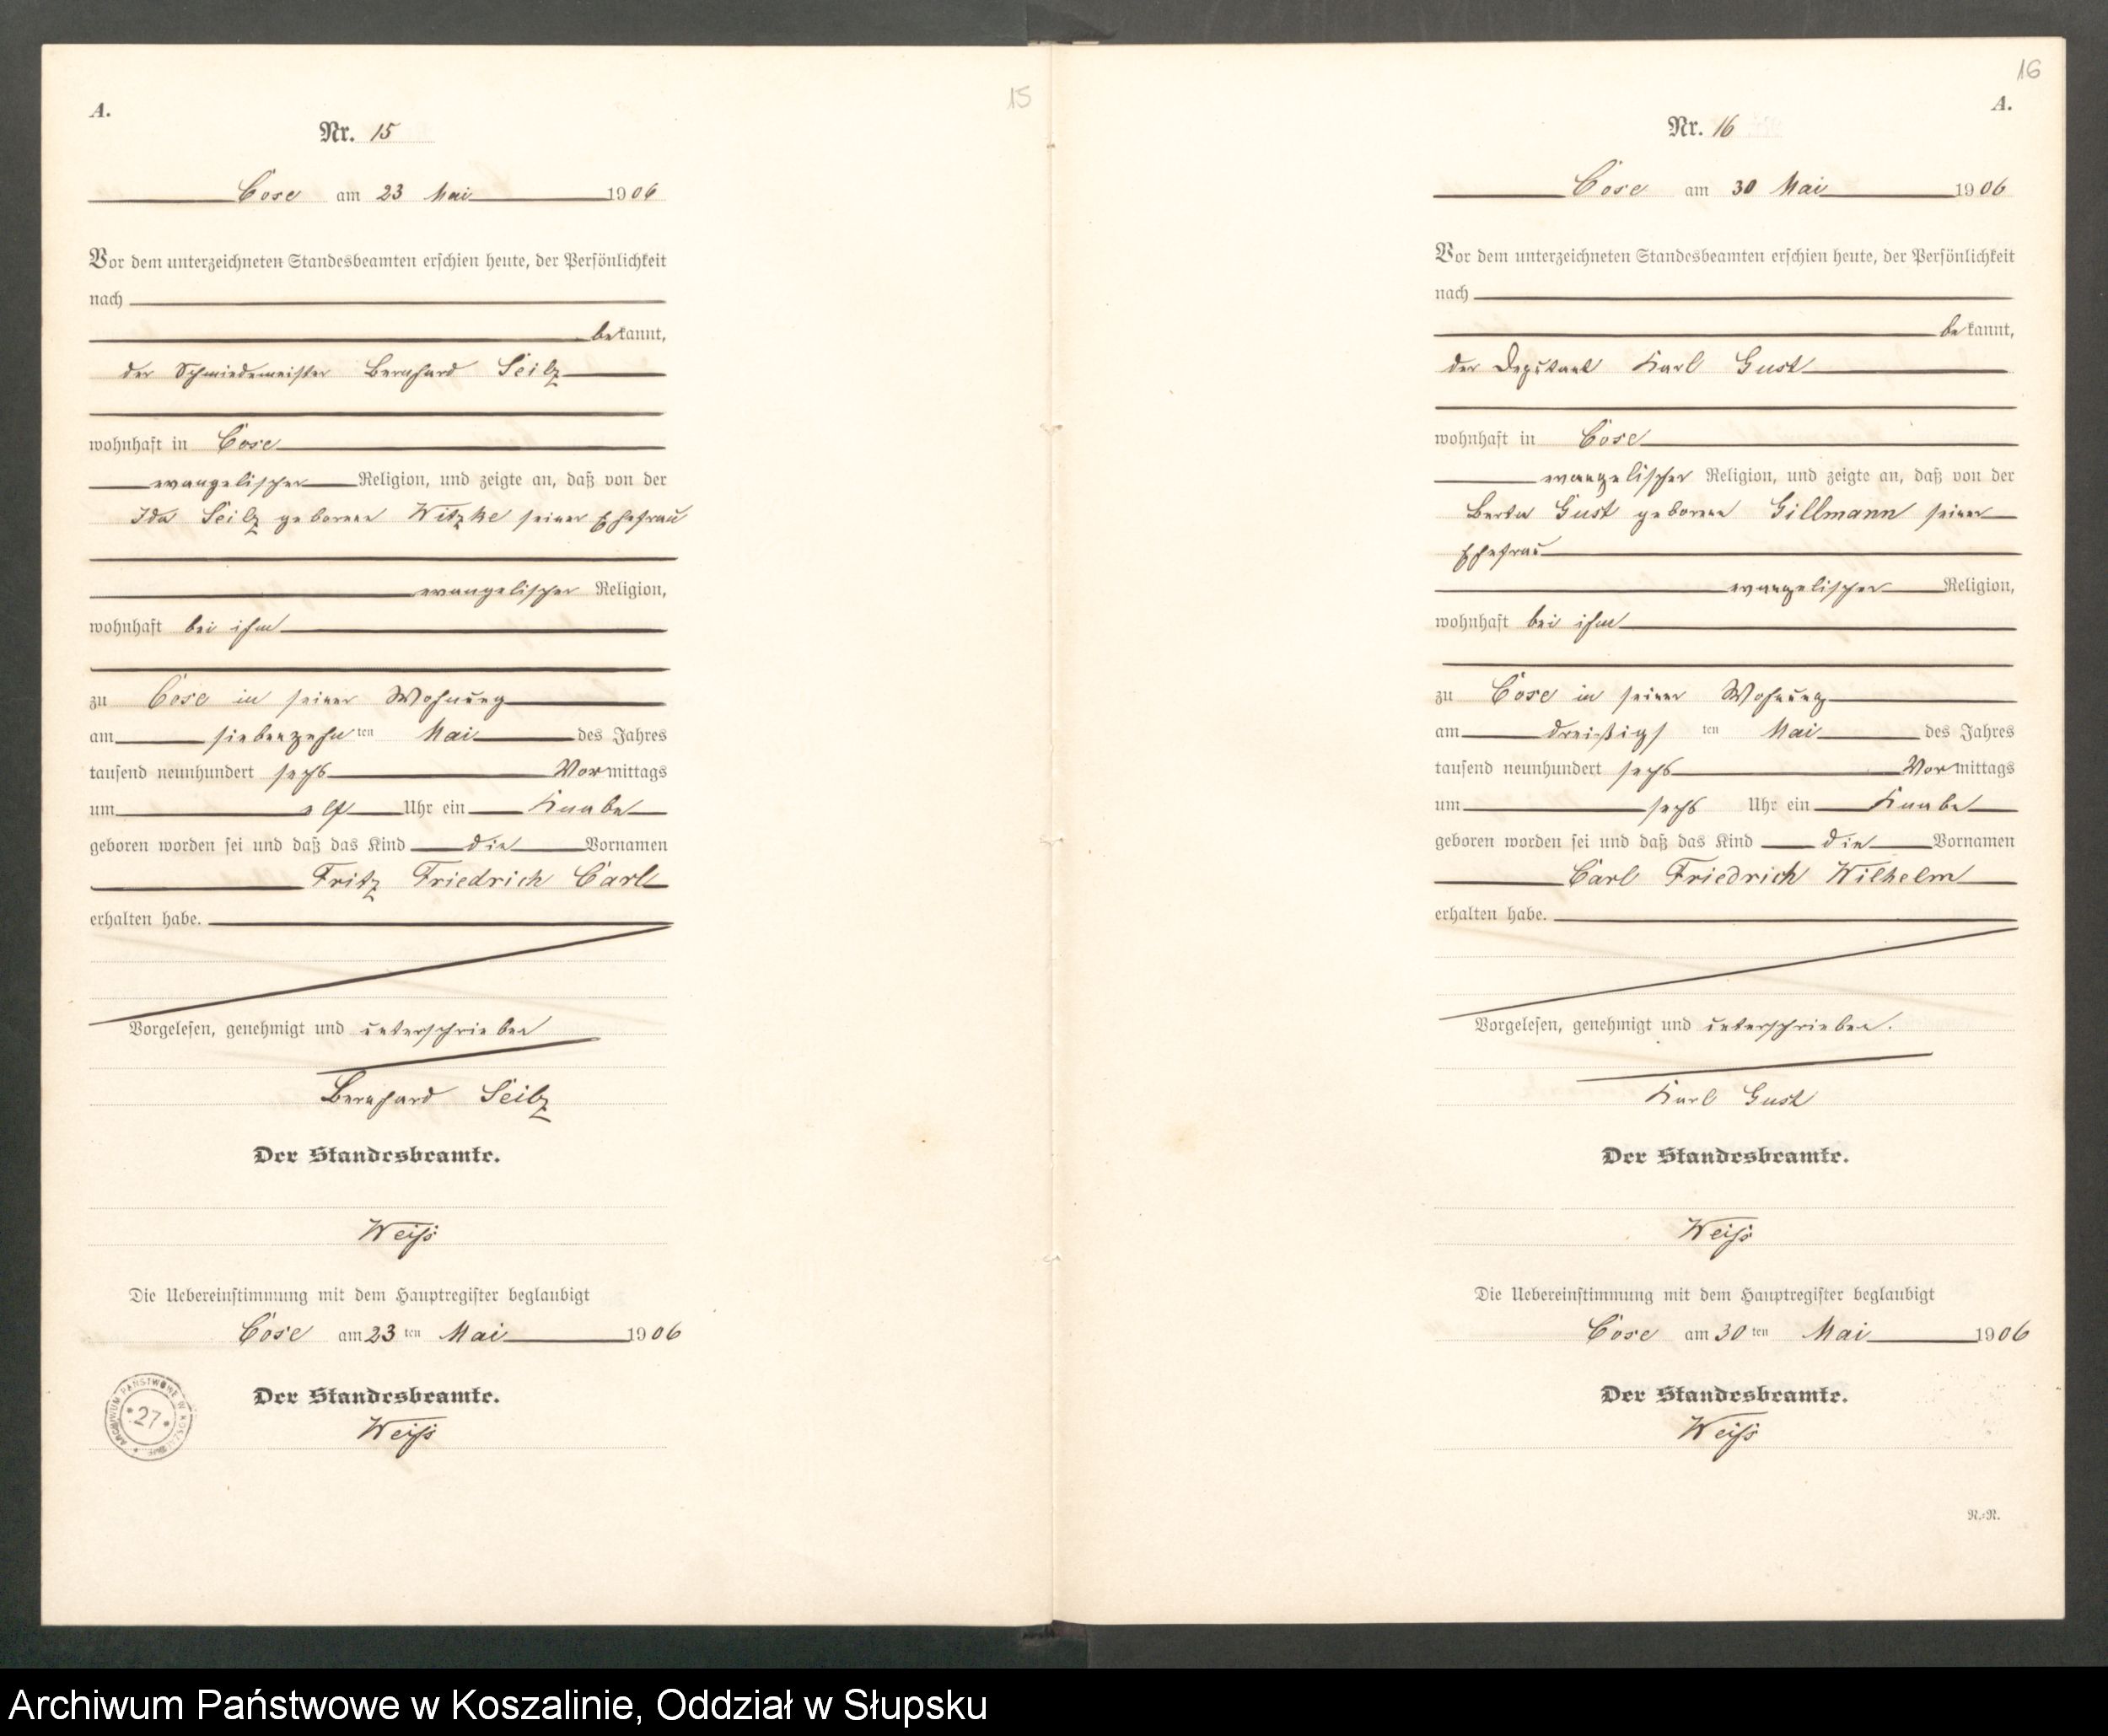 15
A.
Nr. 15
Cose am 23 Mai 1906
Vor dem unterzeichneten Standesbeamten erschien heute, der Persönlichkeit
nach
bekannt,
der Schmiedemeister Bernhard Seilz
wohnhaft in Cose
evangelischer Religion, und zeigte an, daß von der
Ida Seilz geborene Witzke seiner Ehefrau
evangelischer Religion,
wohnhaft bei ihm
zu Cose in seiner Wohnung
am siebenzehnten Mai des Jahres
tausend neunhundert sechs Vormittags
um elf Uhr ein Knabe
geboren worden sei und daß das Kind die Vornamen
Fritz Friedrich Carl
erhalten habe.
Vorgelesen, genehmigt und unterschrieben
Bernhard Seilz
Der Standesbeamte.
Weiß
Die Uebereinstimmung mit dem Hauptregister beglaubigt
Cose am 23ten Mai 1906
Der Standesbeamte.
Weiß
ARCHIWUM PAŃSTWOWE W KOSZALINIE
27
16
A.
Nr. 16
Cose am 30 Mai 1906
Vor dem unterzeichneten Standesbeamten erschien heute, der Persönlichkeit
nach
bekannt,
der Deputant Karl Gust
wohnhaft in Cose
evangelischer Religion, und zeigte an, daß von der
Berta Gust geborene Gillmann seiner
Ehefrau
evangelischer Religion,
wohnhaft bei ihm
zu Cose in seiner Wohnung
am dreißigsten Mai des Jahres
tausend neunhundert sechs Vormittags
um sechs Uhr ein Knabe
geboren worden sei und daß das Kind die Vornamen
Carl Friedrich Wilhelm
erhalten habe.
Vorgelesen, genehmigt und unterschrieben.
Karl Gust
Der Standesbeamte.
Weiß
Die Uebereinstimmung mit dem Hauptregister beglaubigt
Cose am 30ten Mai 1906
Der Standesbeamte.
Weiß
R.=R.
Archiwum Państwowe w Koszalinie, Oddział w Słupsku